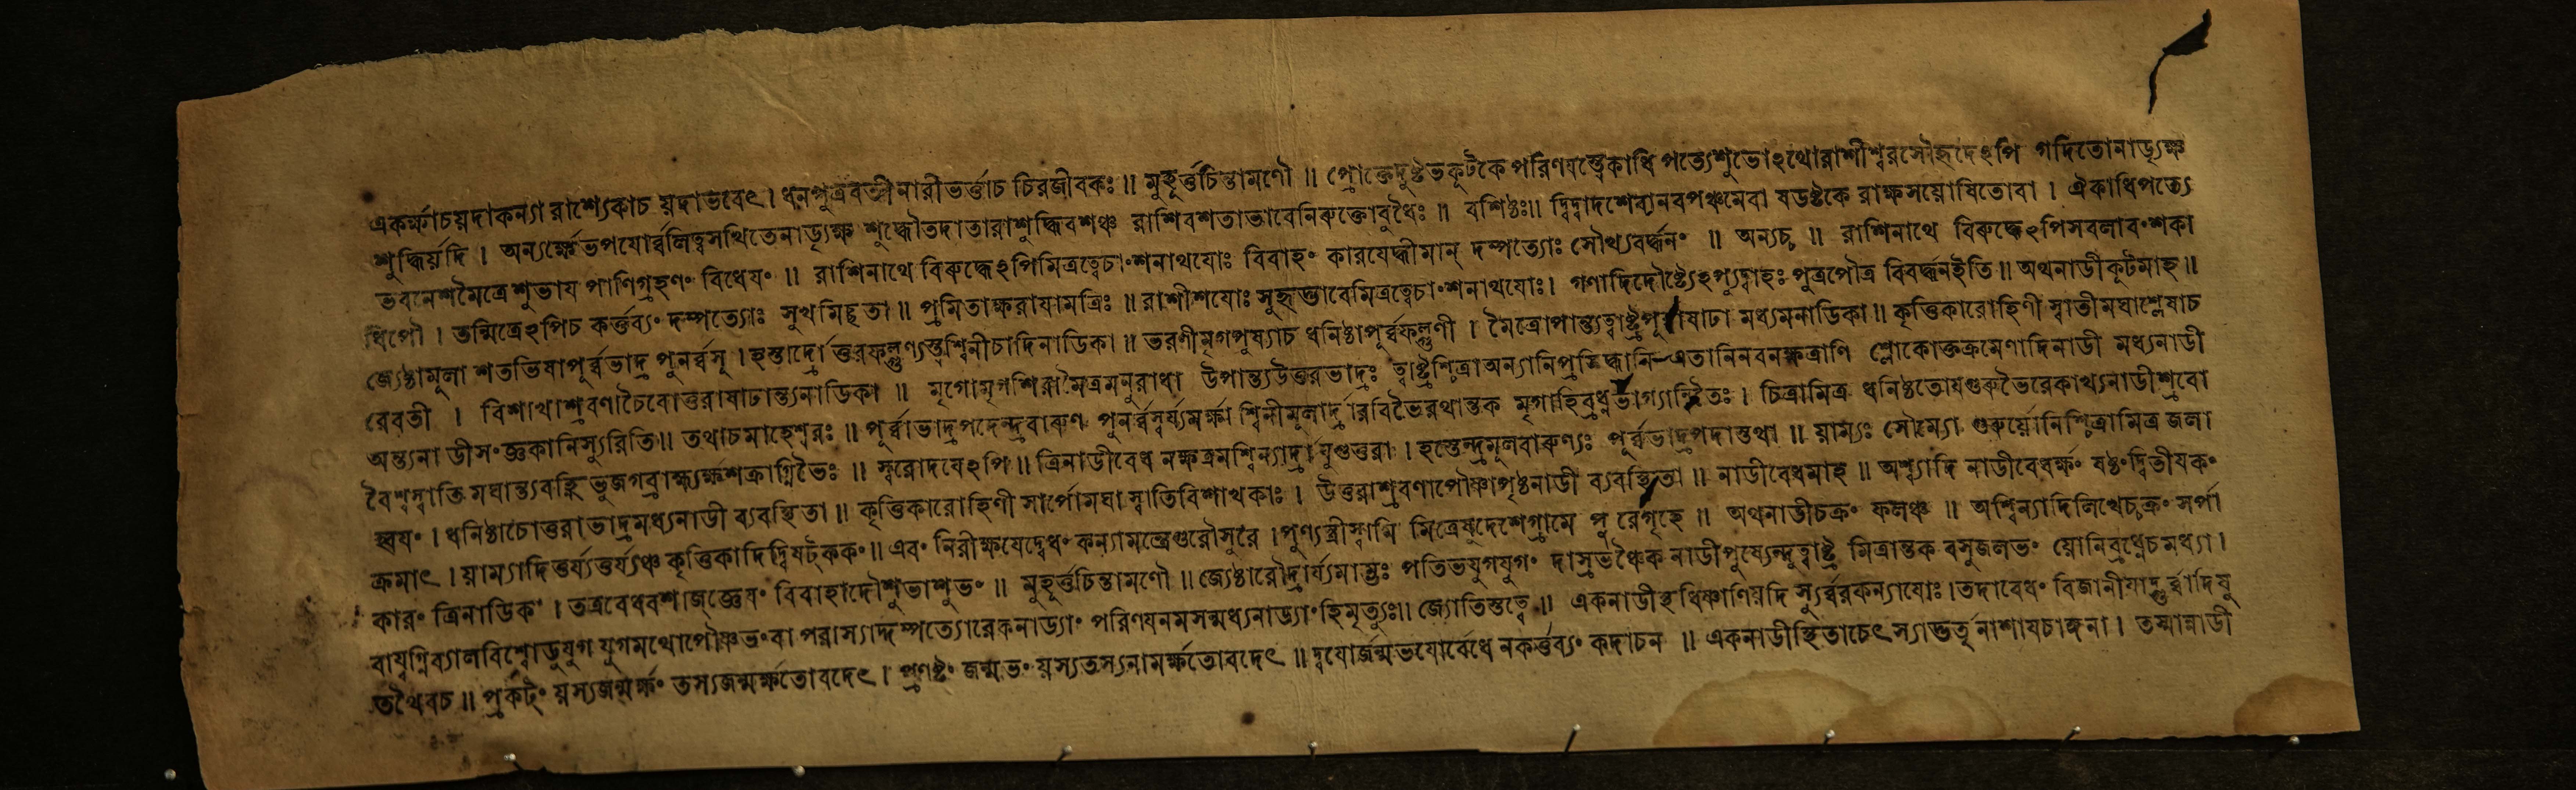 একর্ক্ষাচয়দাকন্যা রাশ্যেকাচ য়দাভবেৎ। ধনপুত্রবতীনারীভর্ত্তাচ চিরজীবকঃ॥ মুহূর্ত্তচিন্তামণৌ॥ প্রোক্তেদুষ্টভকূটকে পরিণযস্ত্বেকাধিপত্যেশুভোঽথোরাশীশ্বরসৌহৃদেঽপি গদিতোনাড্যৃক্ষ
শুদ্ধির্য়দি। অন্যর্ক্ষেভপযোর্ব্বলিত্বসখিতেনাড্যৃক্ষ শুদ্ধৌতদাতারাশুদ্ধিবশঞ্চ রাশিবশতাভাবেনিরুক্তোবুধৈঃ॥ বশিষ্ঠঃ॥ দ্বির্দ্বাদশেবানবপঞ্চমেবা ষডষ্টকে রাক্ষসয়োষিতোবা। ঐকাধিপত্যে
ভবনেশমৈত্রেশুভায পাণিগ্রহণং বিধেযং॥ রাশিনাথে বিরুদ্ধেঽপিমিত্রত্বেচাংশনাথযোঃ বিবাহং কারযেদ্ধীমান্ দম্পত্যোঃ সৌখ্যবর্দ্ধনং॥ অন্যচ্চ॥ রাশিনাথে বিরুদ্ধেঽপিসবলাবংশকা
ধিপৌ। তন্মিত্রেঽপিচ কর্ত্তব্যং দম্পত্যোঃ সুখমিচ্ছতা॥ প্রমিতাক্ষরাযামত্রিঃ॥ রাশীশযোঃ সুহৃদ্ভাবেমিত্রত্বেচাংশনাথযোঃ। গণাদিদৌষ্ট্যেঽপ্যুদ্বাহঃ পুত্রপৌত্র বিবর্দ্ধনইতি॥ অথনাডীকূটমাহ॥
জ্যেষ্ঠামূলা শতভিষাপূর্ব্বভাদ্র পুনর্ব্বসূ। হস্তার্দ্রোত্তরফল্গুণ্যস্ত্বশ্বিনীচাদিনাডিকা॥ ভরণীমৃগপুষ্যাচ ধনিষ্ঠাপূর্ব্বফল্গুণী। মৈত্রোপান্ত্যত্বাষ্ট্রপূর্বাষাঢা মধ্যমনাডিকা॥ কৃত্তিকারোহিণী স্বাতীমঘাশ্লেষাচ
রেবতী। বিশাখাশ্রবণাচৈবোত্তরাষাঢান্ত্যনাডিকা॥ মৃগোমৃগশিরামৈত্রমনুরাধা উপান্ত্যউত্তরভাদ্রঃ ত্বাষ্ট্রশ্চিত্রাঅন্যানিপ্রসিদ্ধানি এতানিনবনক্ষত্রাণি শ্লোকোক্তক্রমেণাদিনাডী মধ্যনাডী
অন্ত্যনাডীসংজ্ঞকানিস্যুরিতি॥ তথাচমাহেশ্বরঃ॥ পূর্ব্বাভাদ্রপদেন্দ্রবারুণ পুনর্ব্বস্বর্য্যমর্ক্ষা শ্বিনীমূলার্দ্রারবিভৈরথান্তক মৃগাহির্ব্রধ্নভাগ্যান্বিতৈঃ। চিত্রামিত্র ধনিষ্ঠতোযগুরুভৈরেকাথ্যনাডীশ্রবো
বৈশ্বস্বাতি মঘান্ত্যবহ্নিভুজগব্রাহ্ম্যক্ষশক্রাগ্নিভৈঃ॥ স্বরোদযেঽপি॥ ত্রিনাডীবেধ নক্ষত্রমশ্বিন্যার্দ্রাযুগুত্তরা। হস্তেন্দ্রমূলবারুণ্যঃ পূর্ব্বভাদ্রপদাস্তথা॥ য়াম্যঃ সৌম্যো গুরুর্য়োনিশ্চিত্রামিত্র জলা
হ্বযং। ধনিষ্ঠাচোত্তরাভাদ্রমধ্যনাডী ব্যবস্থিতা॥ কৃত্তিকারোহিণী সার্পোমঘা স্বাতিবিশাখকাঃ। উত্তরাশ্রবণাপৌষ্ণাপৃষ্ঠনাডী ব্যবস্থিতা॥ নাডীবেধমাহ॥ অশ্ব্যাদি নাডীবেধর্ক্ষং ষষ্ঠংদ্বিতীযকং
ক্রমাৎ। য়াম্যাদিতুর্য্যতুর্য্যঞ্চ কৃত্তিকাদিদ্বিষট্ককং॥ এবং নিরীক্ষযেদ্বেধং কন্যামন্ত্রেগুরৌসুরে। পুণ্যস্ত্রীস্বামি মিত্রেষুদেশেগ্রামে পুরেগৃহে॥ অথনাডীচক্রং ফলঞ্চ॥ অশ্বিন্যাদিলিখেচ্চক্রং সর্পা
কারং ত্রিনাডিকং। তত্রবেধবশাজজ্ঞেযং বিবাহাদৌশুভাশুভং॥ মুহূর্ত্তচিন্তামণৌ॥ জ্যেষ্ঠারৌদ্রার্য্যমাম্ভঃ পতিভযুগযুগং দাস্রভঞ্চৈক নাডীপুষ্যেন্দুত্বাষ্ট্র মিত্রান্তক বসুজলভং য়োনিব্রধ্নেচমধ্যা।
বায্বগ্নিব্যালবিশ্বোডুযুগ যুগমথোপৌষ্ণভংবা পরাস্যাদ্দম্পত্যোরেকনাড্যাং পরিণযনমসন্মধ্যনাড্যাংহিমৃত্যুঃ॥ জ্যোতিস্তত্বে॥ একনাডীস্থধিষ্ণ্যাণিয়দি স্যুর্ব্বরকন্যাযোঃ। তদাবেধং বিজানীযাদ্গুর্ব্বাদিষু
তথৈবচ॥ প্রকটং য়স্যজন্মর্ক্ষং তস্যজন্মর্ক্ষতোবদেৎ। প্রণষ্টং জন্মভং য়স্যতস্যনামর্ক্ষতোবদেৎ॥ দ্বযোর্জন্মভযোর্বেধে নকর্ত্তব্যং কদাচন॥ একনাডীস্থিতাচেৎ স্যাদ্ভর্তৃনাশাযচাঙ্গনা। তস্মান্নাডী